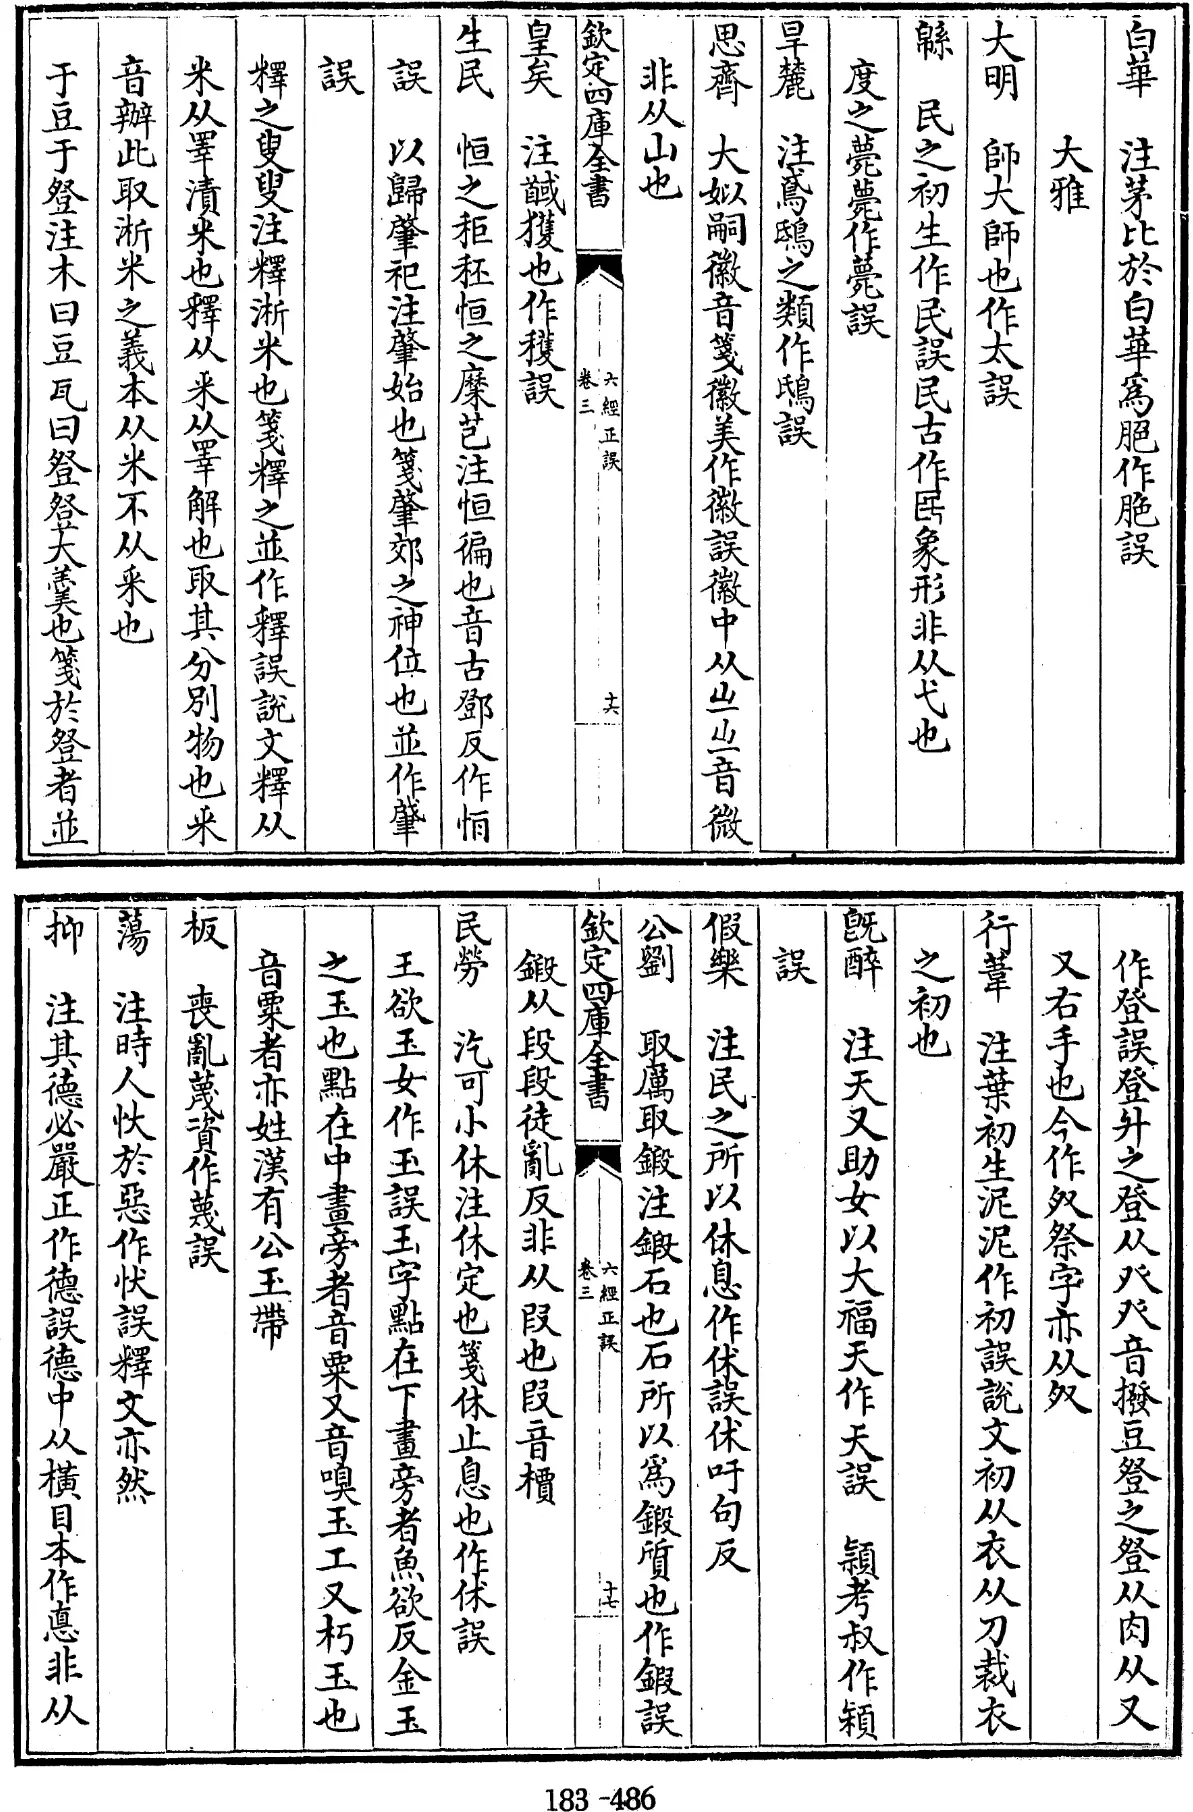 白華　注茅比於白華爲脃作脆誤
大雅
大明　師大師也作太誤
緜　民之初生作民誤民古作象形非从弋也
度之薨薨作薨誤
旱麓　注鳶鴟之類作鴟誤
思齊　大姒嗣徽音箋徽美作徽誤徽中从𡵂𡵂音微
非从山也
欽定四庫全書
六經正誤
卷三
十六
皇矣　注馘獲也作穫誤
生民　恒之秬秠恒之穈芑注恒徧也音古鄧反作恒
誤　以歸肇祀注肇始也箋肇郊之神位也並作肇
誤
釋之叟叟注釋淅米也箋釋之並作釋誤說文釋从
米从睪漬米也釋从釆从睪解也取其分別物也釆
音辦此取淅米之義本从米不从釆也
于豆于豋注木曰豆瓦曰豋豋大羹也箋於豋者並
作登誤登升之登从癶癶音撥豆豋之豋从肉从又
又右手也今作𣦼祭字亦从𣦼
行葦　注葉初生泥泥作初誤說文初从衣从刀裁衣
之初也
既醉　注天又助女以大福天作夭誤　潁考叔作穎
誤
假樂　注民之所以休息作休誤休吁句反
公劉　取厲取鍛注鍛石也石所以爲鍛質也作鍜誤
欽定四庫全書
六經正誤
卷三
十七
鍛从段段徒亂反非从叚也叚音檟
民勞　汔可小休注休定也箋休止息也作休誤
王欲玉女作玉誤玉字點在下畫旁者魚欲反金玉
之玉也點在中畫旁者音粟又音嗅玉工又朽玉也
音粟者亦姓漢有公玉帶
板　喪亂蔑資作蔑誤
蕩　注時人忕於惡作忕誤釋文亦然
抑　注其德必嚴正作德誤德中从橫目本作悳非从
183-486